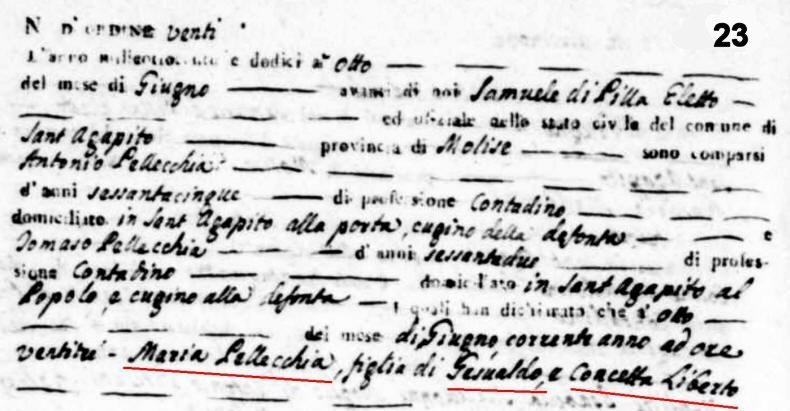 23
N D'ORDINE venti
L'anno milleottocento e dodici a' otto
del mese di Giugno avanti di noi Samuele di Pilla Eletto
ed uficiale dello stato civile del comune di
Sant Agapito provincia di Molise sono comparsi
Antonio Pellecchia
d'anni sessantacinque di professione Contadino
domiciliato in Sant Agapito alla porta, cugino della defonta e
Tomaso Pellecchia d'anni sessantadue di profes-
sione Contadino domiciliato in Sant Agapito al
Popolo, e cugino alla defonta i quali han dichiarato, che a' otto
del mese di Giugno corrente anno ad ore
ventitrè - Maria Pellecchia, figlia di Gesualdo, e Concetta Liberto